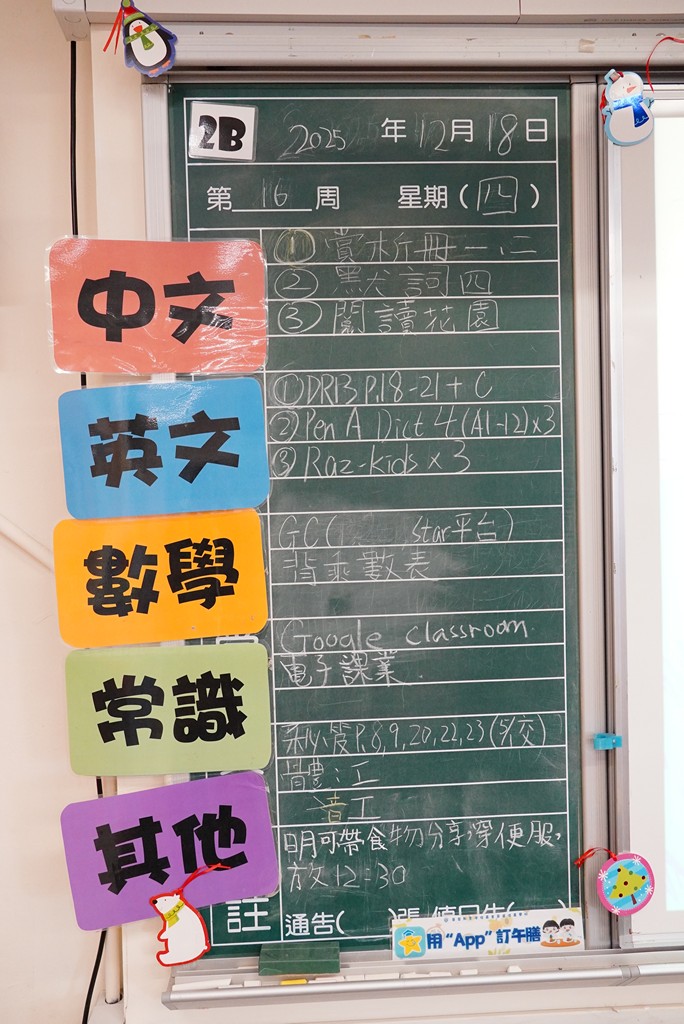 2B 2025 年 12 月 18 日
第 16 周 星期（四）
中文
① 賞析冊一、二
② 默詞四
③ 閱讀花園
英文
① DR13 P.18-21 + C
② Pen A Dict 4 (A1-12) x3
③ Raz-kids x 3
數學
GC( star平台)
背乘數表
常識
Google classroom.
電子課業.
其他
P.8,9,20,22,23 (5/1交)
體:工
音工
明可帶食物分享,穿便服,
放12:30
註 通告( )張
用 "App" 訂午膳